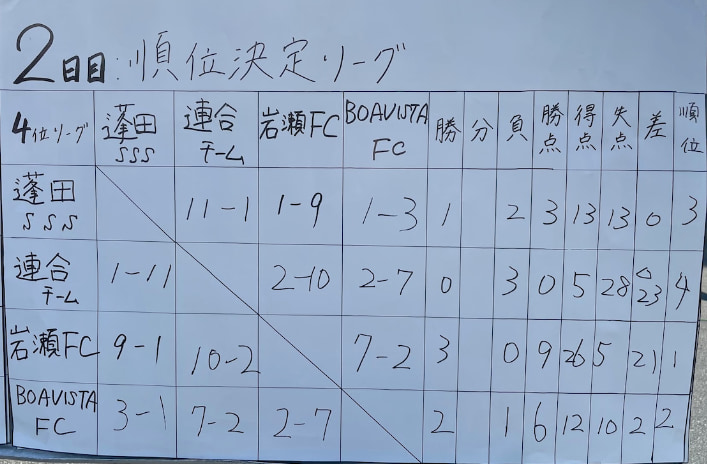 2日目:順位決定リーグ
4位リーグ 蓬田SSS 連合チーム 岩瀬FC BOAVISTA FC 勝 分 負 勝点 得点 失点 差 順位
蓬田SSS 11-1 1-9 1-3 1 2 3 13 13 0 3
連合チーム 1-11 2-10 2-7 0 3 0 5 28 △23 4
岩瀬FC 9-1 10-2 7-2 3 0 9 26 5 21 1
BOAVISTA FC 3-1 7-2 2-7 2 1 6 12 10 2 2